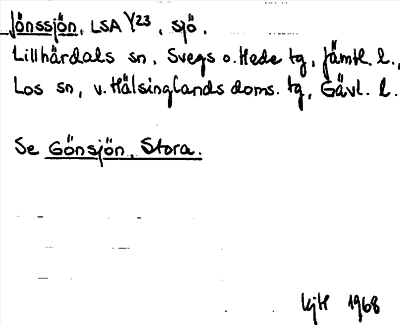 Jönssjön, LSA Y23, sjö.
Lillhärdals sn, Svegs o. Hede tg, Jämtl. l.,
Los sn, v. Hälsinglands doms. tg, Gävl. l.
Se Gönsjön, Stora.
1968